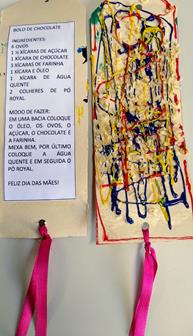 BOLO DE CHOCOLATE
INGREDIENTES:
6 OVOS
1 ½ XÍCARAS DE AÇÚCAR
1 XÍCARA DE CHOCOLATE
3 XÍCARAS DE FARINHA
1 XÍCARA E ÓLEO
1 XÍCARA DE ÁGUA
QUENTE
2 COLHERES DE PÓ
ROYAL.
MODO DE FAZER:
EM UMA BACIA COLOQUE
O ÓLEO, OS OVOS, O
AÇÚCAR, O CHOCOLATE E
A FARINHA.
MEXA BEM, POR ÚLTIMO
COLOQUE A ÁGUA
QUENTE E EM SEGUIDA O
PÓ ROYAL.
FELIZ DIA DAS MÃES!